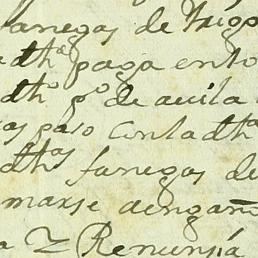 fanegas de trigo
dhª paga en to
dho gº de auila
paso Con la dhª
dhas fanegas de
marse aengaño
a Z Renunsia